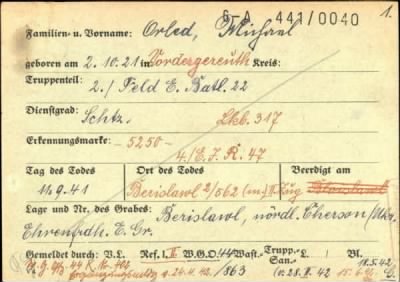 S-A 441/0040 1.
Familien- u. Vorname: Orled, Michael
geboren am 2.10.21 in Vordergereuth Kreis:
Truppenteil: 2./Feld E. Batl. 22
Dienstgrad: Schtz. Lkb. 317
Erkennungsmarke: -5250-
4./E.J.R. 47
Tag des Todes Ort des Todes Beerdigt am
11.9.41 Berislawl 2/562 (m.) II. Zug
Lage und Nr. des Grabes: Berislawl, nördl. Cherson/Ukr.
Ehrenfrdh. E. Gr.
Gemeldet durch: V. L. Ref. II W.G.O. 44 Wast.- Trupp.- San.- L. Bl. 18.5.42
/863 v. 28. II. 42